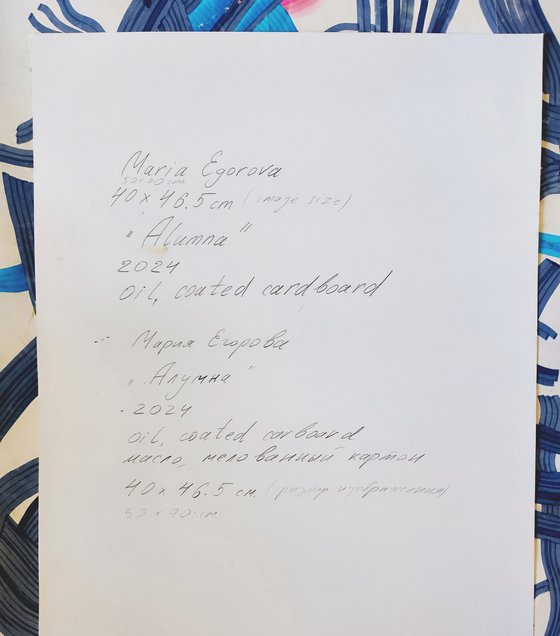 Maria Egorova
50x70 cm
40 x 46.5 cm (image size)
"Alumna"
2024
oil, coated cardboard
Мария Егорова
"Алумна"
2024
oil, coated carboard
масло, мелованный картон
40 x 46.5 см. (размер изображения)
50 x 70 см